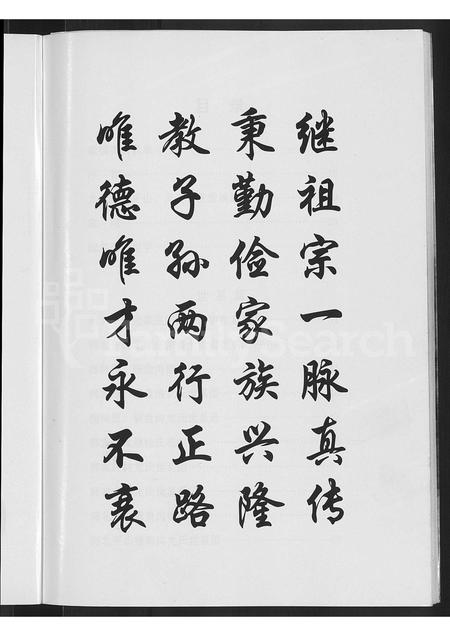 继祖宗一脉真传
秉勤俭家族兴隆
教子孙两行正路
唯德唯才永不衰
FamilySearch